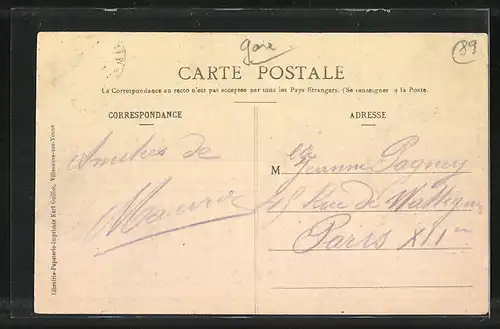 gare
89
CARTE POSTALE
La Correspondance au recto n'est pas acceptée par tous les Pays Étrangers. (Se renseigner à la Poste.
CORRESPONDANCE
ADRESSE
Amitiés de
M lle Jeanne
Rue de Wattignies
Paris XII
Librairie-Papeterie-Imprimée Karl Guillot, Villeneuve-sur-Yonne